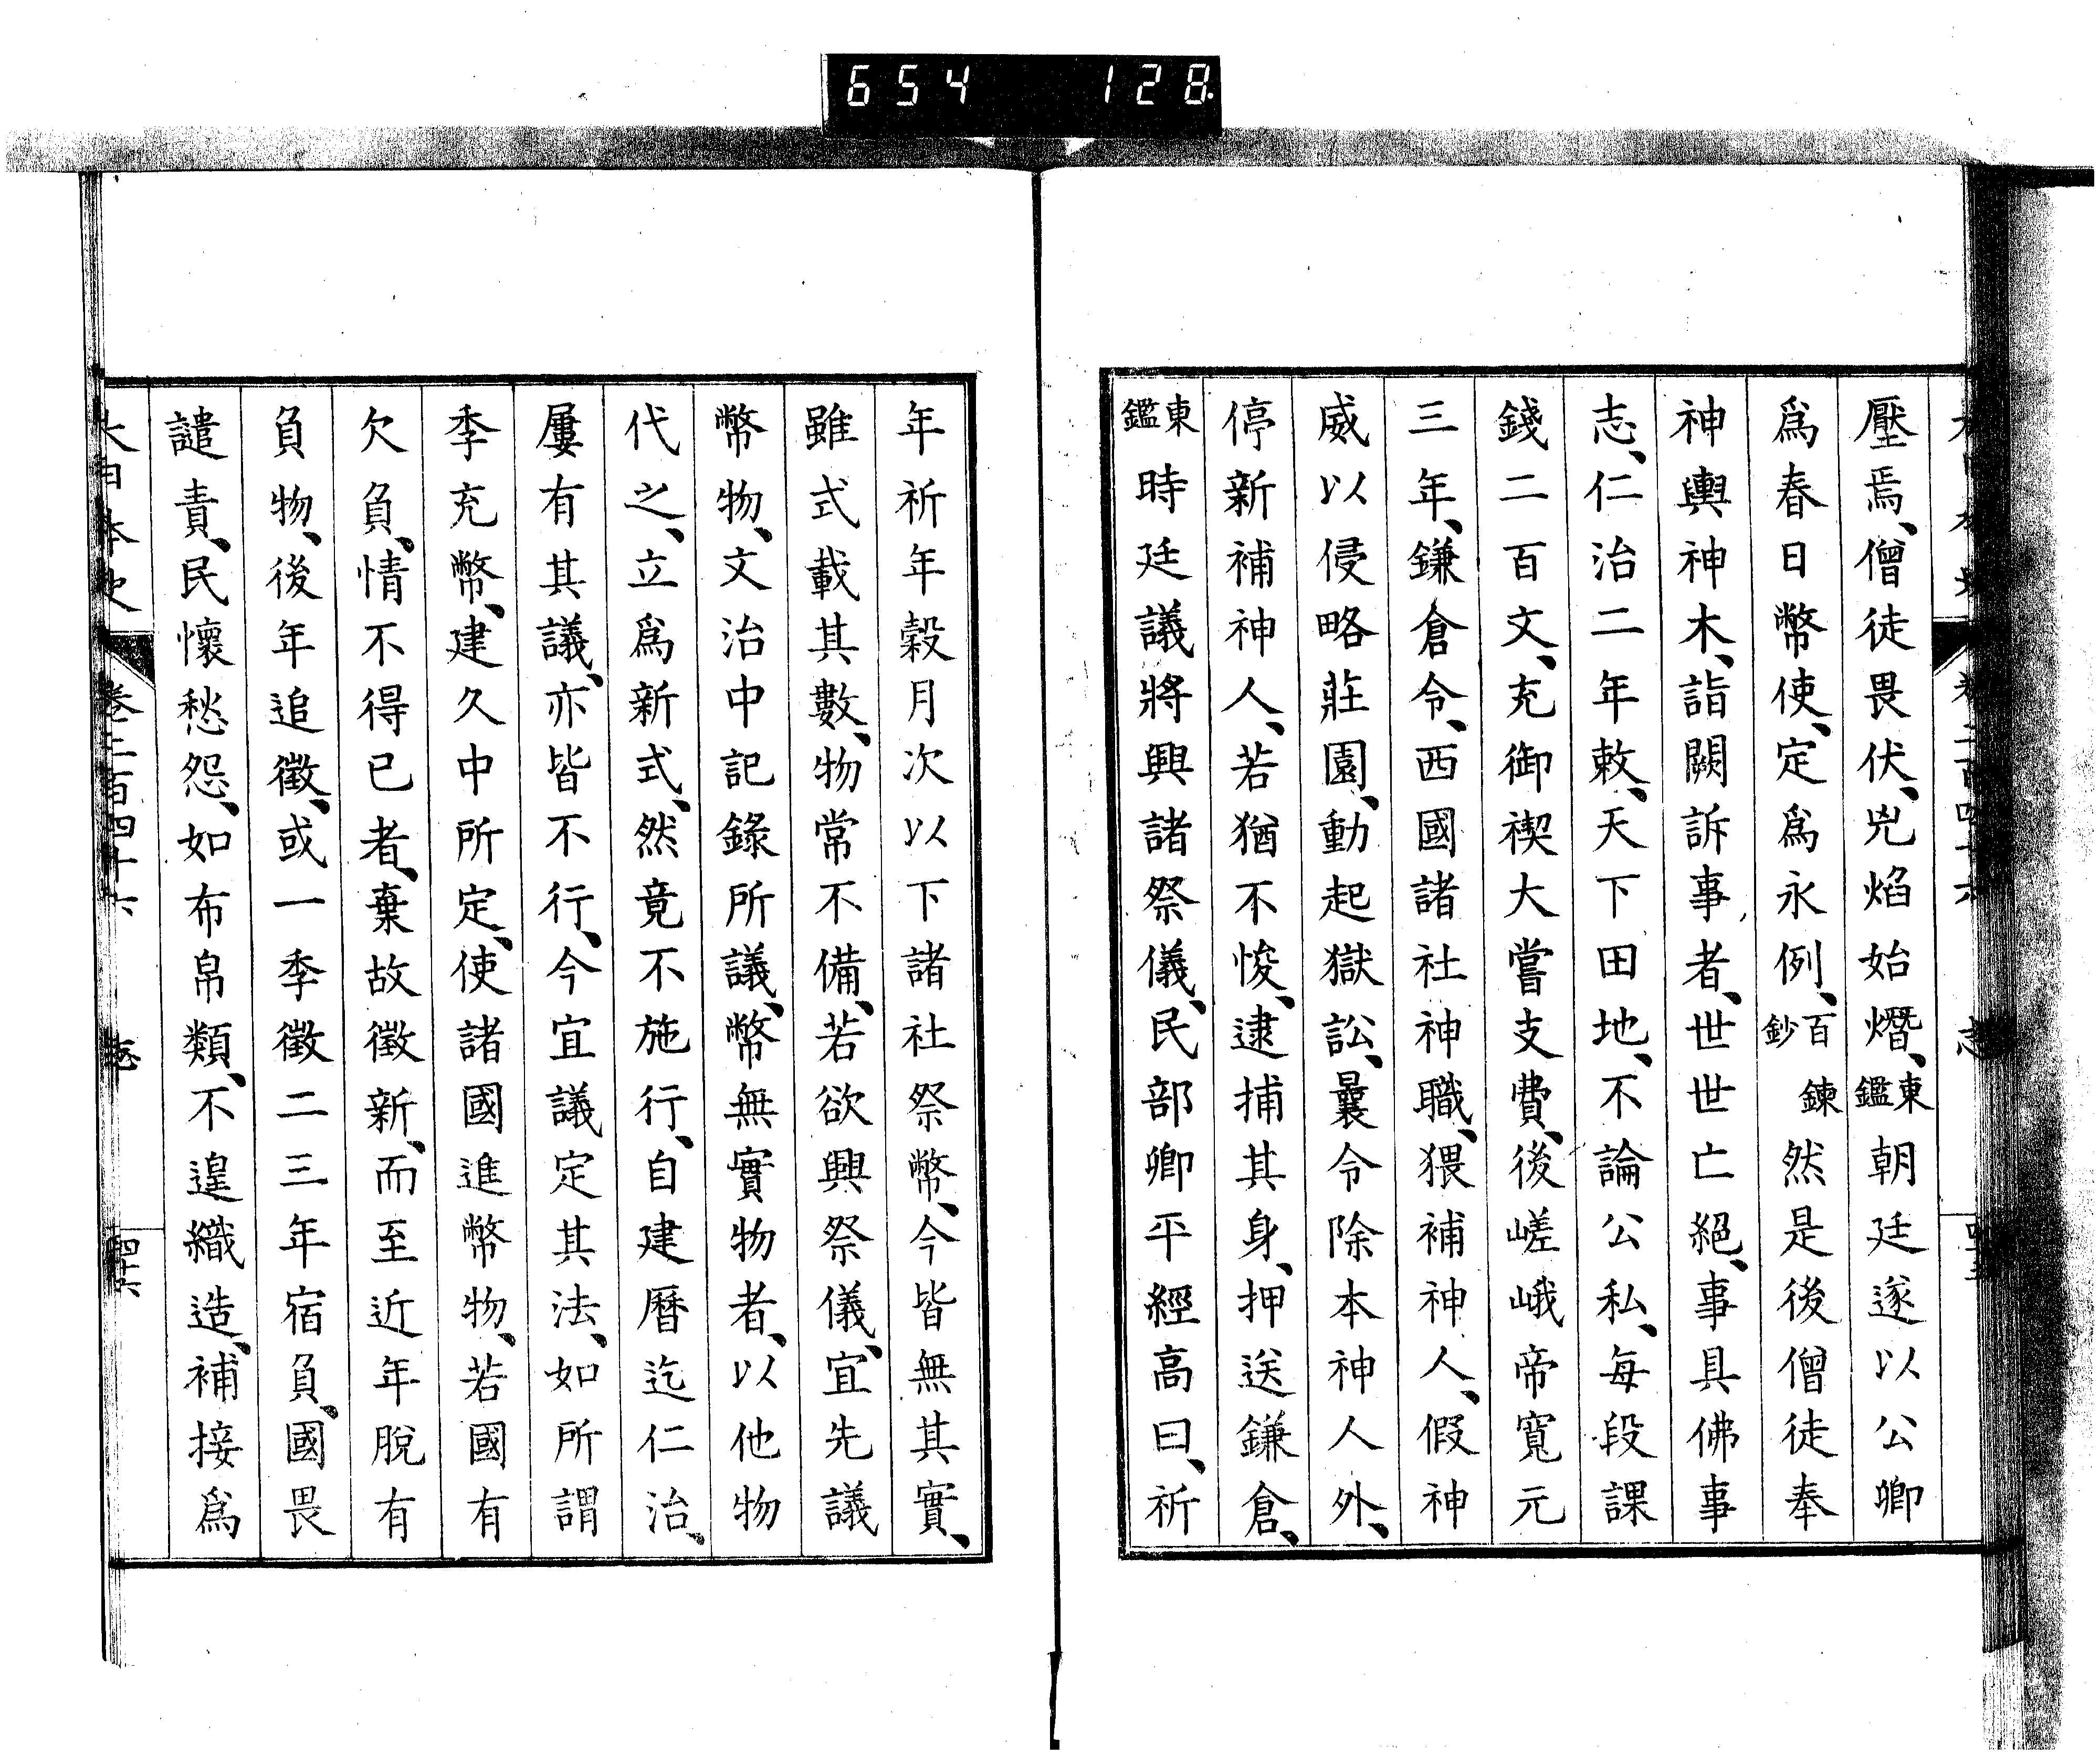 654 128
壓焉、僧徒畏伏、兇焰始熸、東鑑朝廷遂以公卿
爲春日幣使、定爲永例、百鍊鈔然是後僧徒奉
神輿神木、詣闕訴事者、世世亡絕、事具佛事
志、仁治二年敕、天下田地、不論公私、每段課
錢二百文、充御禊大嘗支費、後嵯峨帝寬元
三年、鎌倉令、西國諸社神職、猥補神人、假神
威以侵略莊園、動起獄訟、曩令除本神人外、
停新補神人、若猶不悛、逮捕其身、押送鎌倉、
東鑑時廷議將興諸祭儀、民部卿平經高曰、祈
年祈年穀月次以下諸社祭幣、今皆無其實、
雖式載其數、物常不備、若欲興祭儀、宜先議
幣物、文治中記錄所議、幣無實物者、以他物
代之、立爲新式、然竟不施行、自建曆迄仁治、
屢有其議、亦皆不行、今宜議定其法、如所謂
季充幣、建久中所定、使諸國進幣物、若國有
欠負、情不得已者、棄故徵新、而至近年脫有
負物、後年追徵、或一季徵二三年宿負、國畏
譴責、民懷愁怨、如布帛類、不遑織造、補接爲
大日本史 卷二百四十六 志 四十六